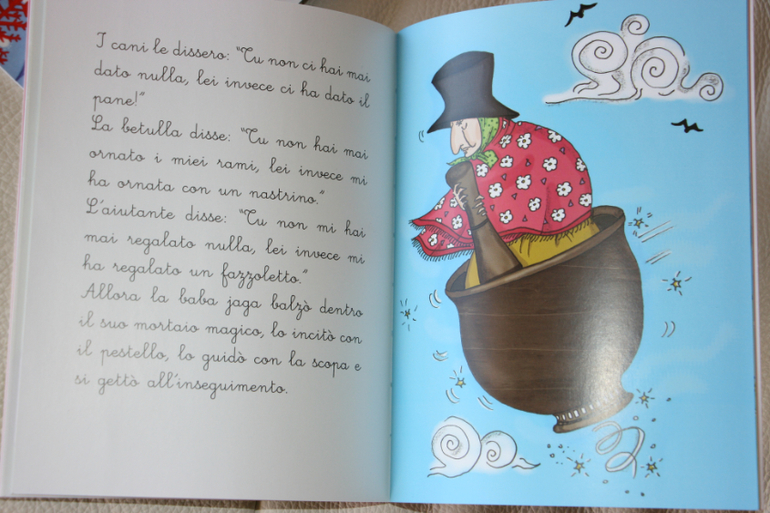 I cani le dissero: "Tu non ci hai mai
dato nulla, lei invece ci ha dato il
pane!"
La betulla disse: "Tu non hai mai
ornato i miei rami, lei invece mi
ha ornata con un nastrino."
L'aiutante disse: "Tu non mi hai
mai regalato nulla, lei invece mi
ha regalato un fazzoletto."
Allora la baba jaga balzò dentro
il suo mortaio magico, lo incitò con
il pestello, lo guidò con la scopa e
si gettò all'inseguimento.